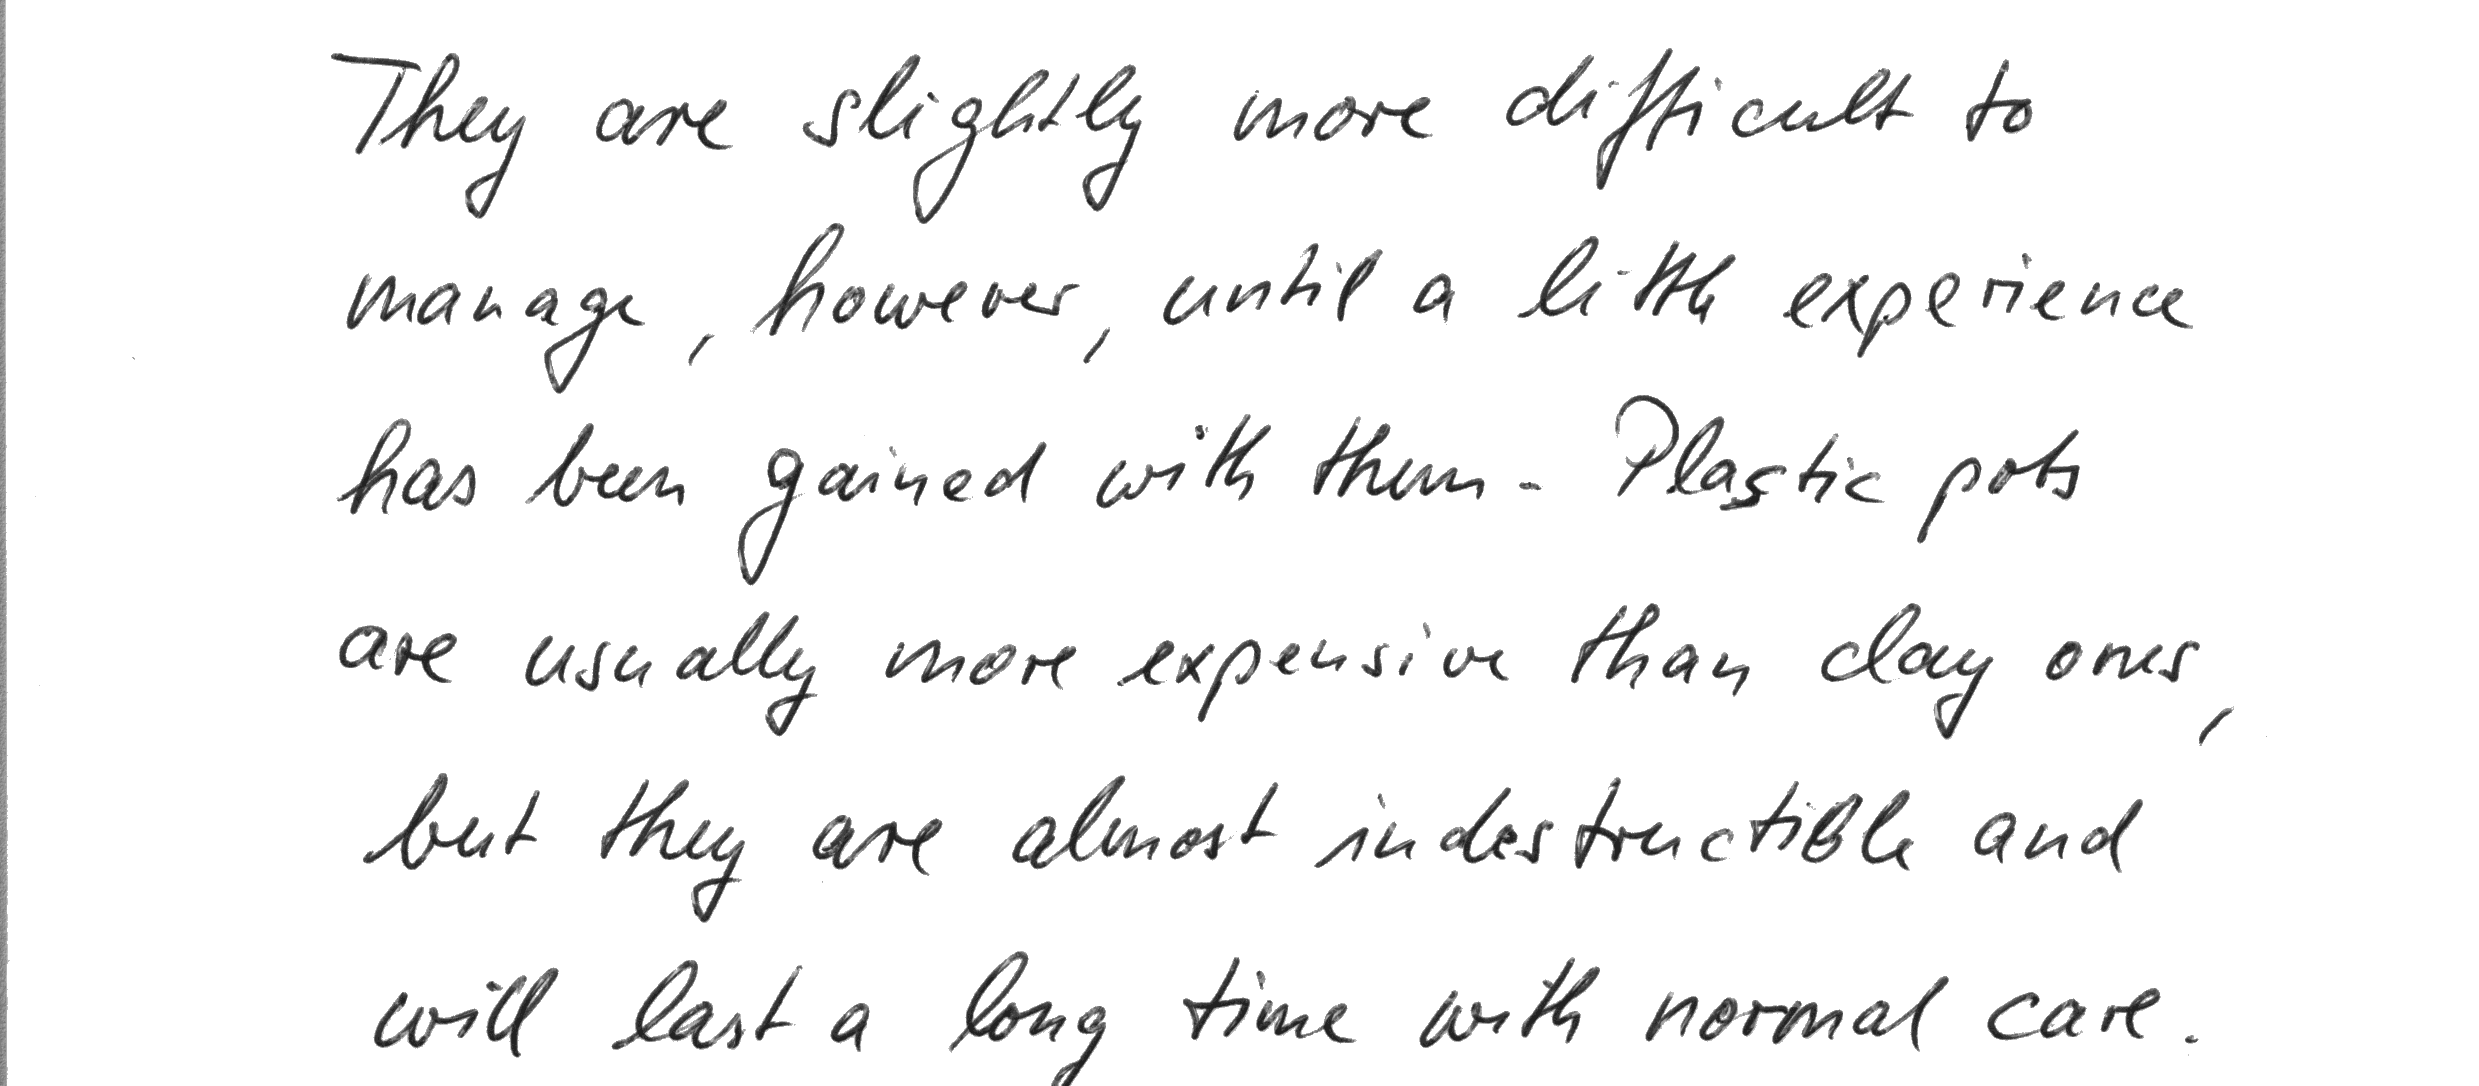 They are slightly more difficult to
manage, however, until a little experience
has been gained with them. Plastic pots
are usually more expensive than clay ones,
but they are almost indestructible and
will last a long time with normal care.